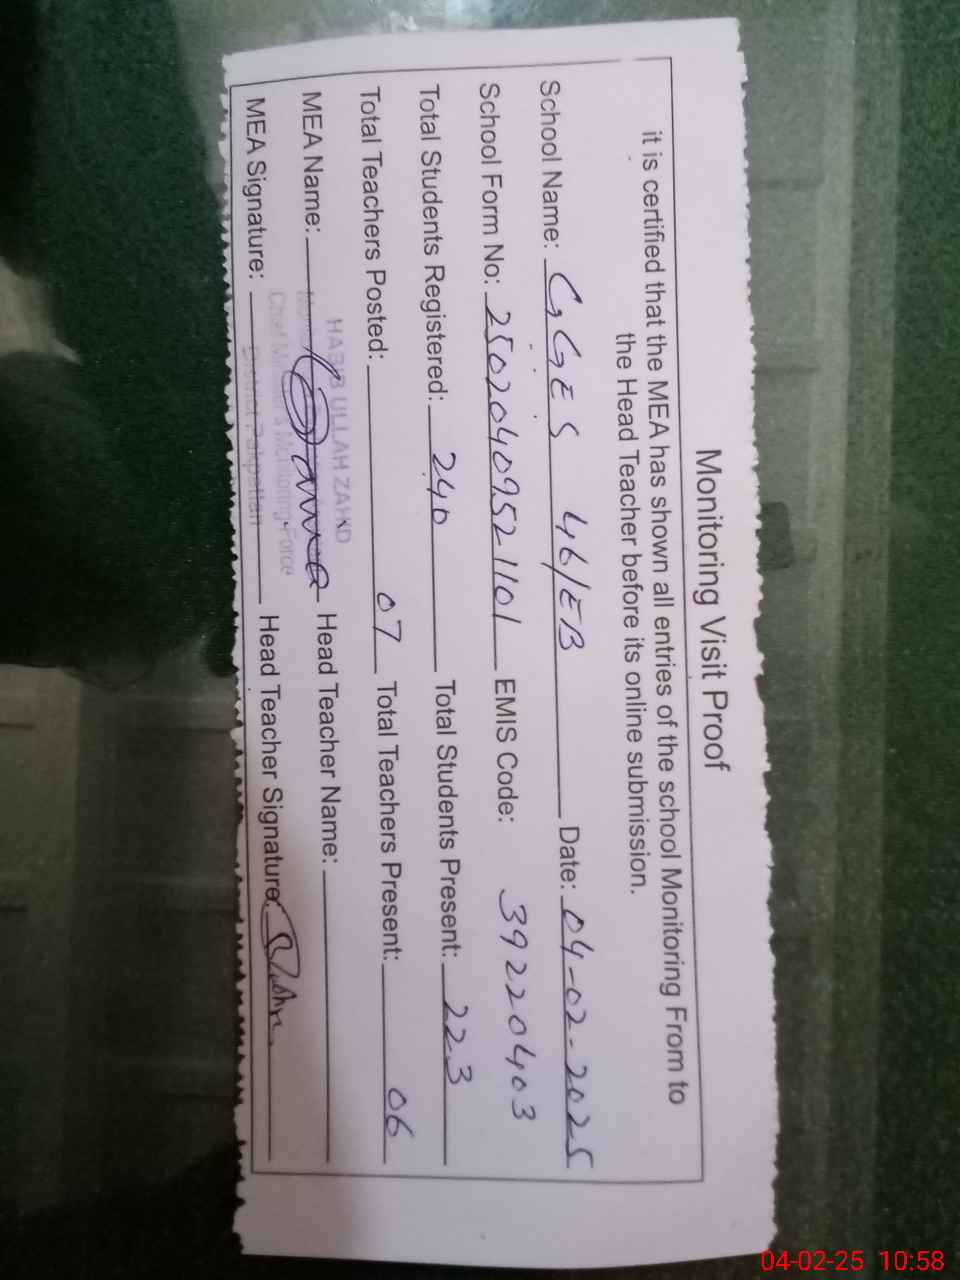 Monitoring Visit Proof
it is certified that the MEA has shown all entries of the school Monitoring From to
the Head Teacher before its online submission.
School Name: GGES 46/EB Date: 04-02-2025
School Form No: 25020409521101 EMIS Code: 39220403
Total Students Registered: 240 Total Students Present: 223
Total Teachers Posted: 07 Total Teachers Present: 06
MEA Name: Head Teacher Name:
HABIB ULLAH ZAHID
Chief Minister's Monitoring Force
District Pakpattan
MEA Signature: Head Teacher Signature:
04-02-25 10:58